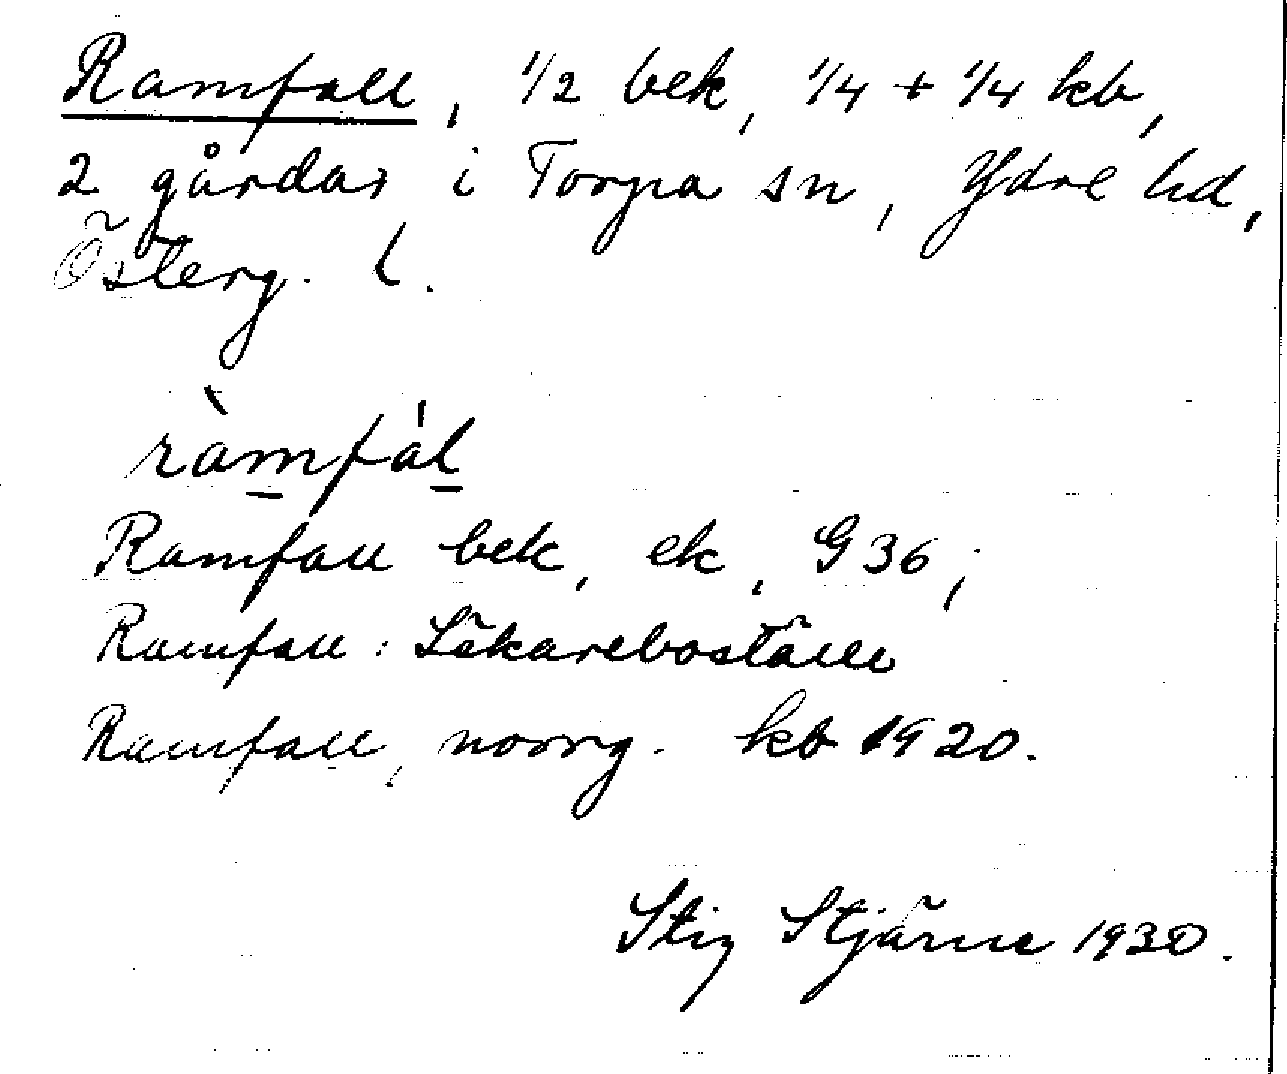 Ramfall, 1/2 bek, 1/4 + 1/4 kb,
2 gårdar i Torpa sn, Ydre hd,
Österg. l.
ràmfál
Ramfall bek, ek, G 36;
Ramfall: Läkareboställe
Ramfall, norrg. kb 1920.
Stig Stjärne 1930.